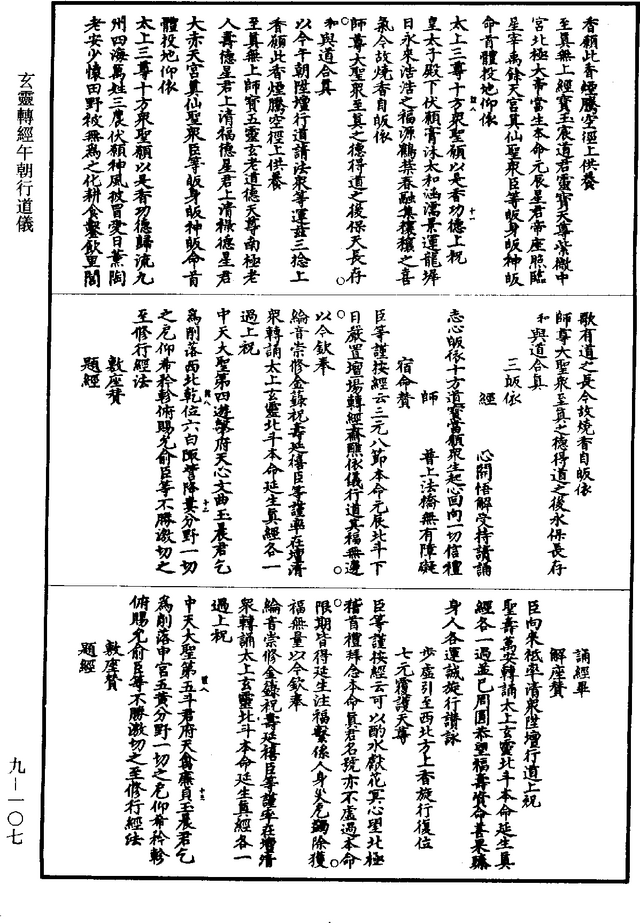 玄靈轉經午朝行道儀
香願此香煙騰空徑上供養
至真無上經寶玉宸道君靈寶天尊紫微中
宮北極大帝當生本命元辰星君帝座照臨
星宰萬錄天宮真仙聖衆臣等皈身皈神皈
命首體投地仰依
太上三尊十方衆聖願以是香功德上祝
皇太子殿下伏願膏沐太和涵濡景運龍墀
日永來浩浩之福源鶴禁春融集穰穰之喜
氣今故燒香自皈依
師尊大聖衆至真之德得道之後保天長存
和與道合真
以今午朝陞壇行道請法衆等運茲三捻上
香願此香煙騰空徑上供養
至真無上師寶五靈玄老道德天尊南極老
人壽德星君上清福德星君上清祿德星君
大赤天宮真仙聖衆臣等皈身皈神皈命首
體投地仰依
太上三尊十方衆聖願以是香功德歸流九
州四海萬姓三農伏願神風披冒愛日薰陶
老安少懷田野被無為之化耕食鑿飲里閭
歌有道之長今故燒香自皈依
師尊大聖衆至真之德得道之後永保長存
和與道合真
三皈依
經　心開悟解受持諸誦
志心皈依十方道寶當願衆生起心回向一切信禮
師　普上法橋無有障礙
宿命贊
臣等謹按經云三元八節本命元辰北斗下
日嚴置壇場轉經齋醮依儀行道其福無邊
以今欽奉
綸音崇修金籙祝壽延禧臣等謹率在壇清
衆轉誦太上玄靈北斗本命延生真經各一
過上祝
中天大聖第四遊擊府天心文曲玉晨君乞
為削落西北乾位六白陬訾降婁分野一切
之厄仰希矜軫俯賜允俞臣等不勝激切之
至修行經法
敷座贊
題經
誦經畢
解座贊
臣向來祗率清衆陞壇行道上祝
聖壽萬安轉誦太上玄靈北斗本命延生真
經各一過並已周圓恭望福壽資命善果臻
身人各運誠旋行讚詠
步虛引至西北方上香旋行復位
七元覆護天尊
臣等謹按經云可以酌水獻花冥心望北極
稽首禮拜念本命真君名號亦不虛過本命
限期皆得延生注福繫係人身災厄蠲除獲
福無量以今欽奉
綸音崇修金籙祝壽延禧臣等謹率在壇清
衆轉誦太上玄靈北斗本命延生真經各一
過上祝
中天大聖第五斗君府天禽廉貞玉晨君乞
為削落中宮五黃分野一切之厄仰希矜軫
俯賜允俞臣等不勝激切之至修行經法
敷座贊
題經
九—一〇七